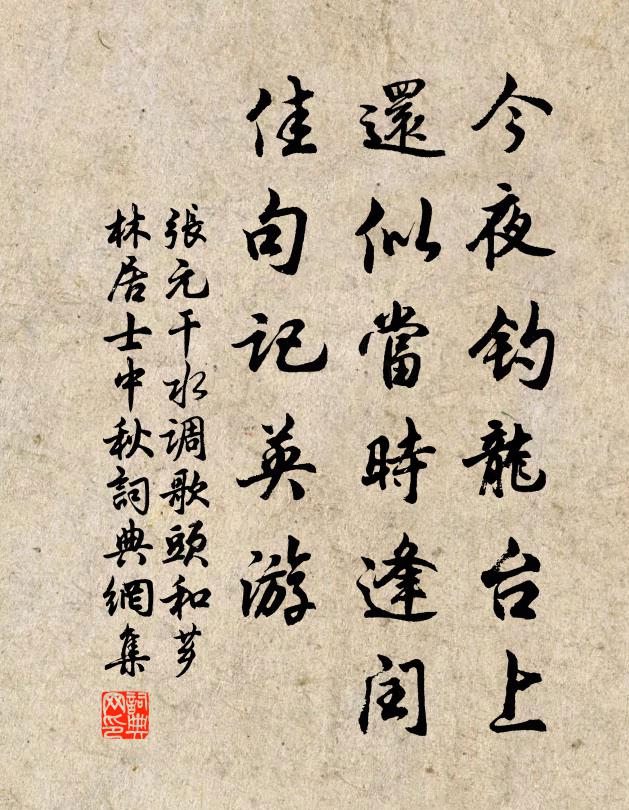 今夜釣龍台上
還似當時逢閏
佳句記英游
張元干水调歌頭和芗
林居士中秋詞典網集
詞典
网印